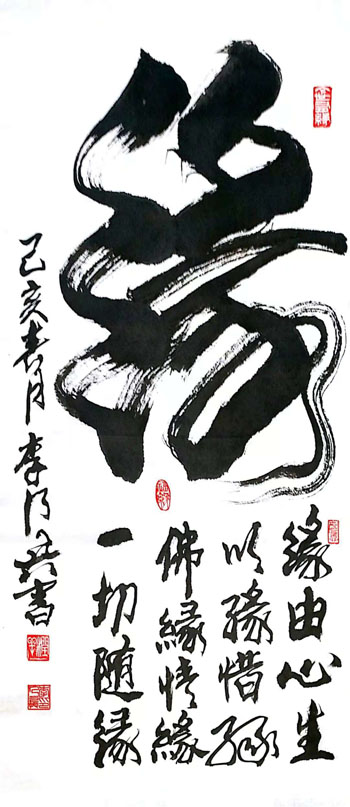 緣
緣由心生
以緣惜緣
佛緣情緣
一切随緣
己亥春月李
書